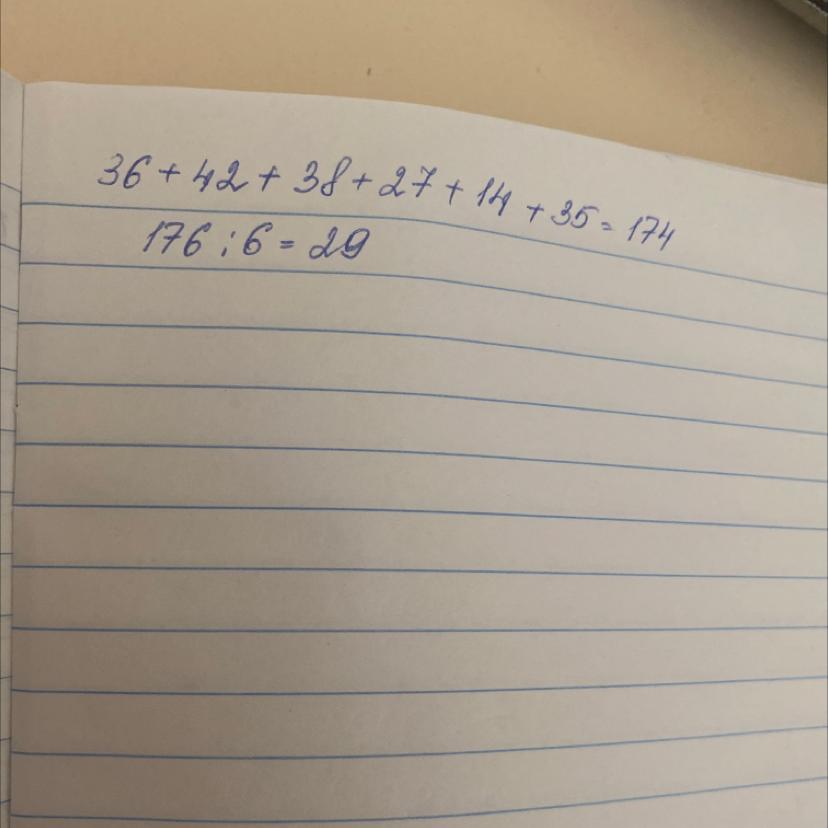 36 + 42 + 38 + 27 + 14 + 35 = 174
176 : 6 = 29